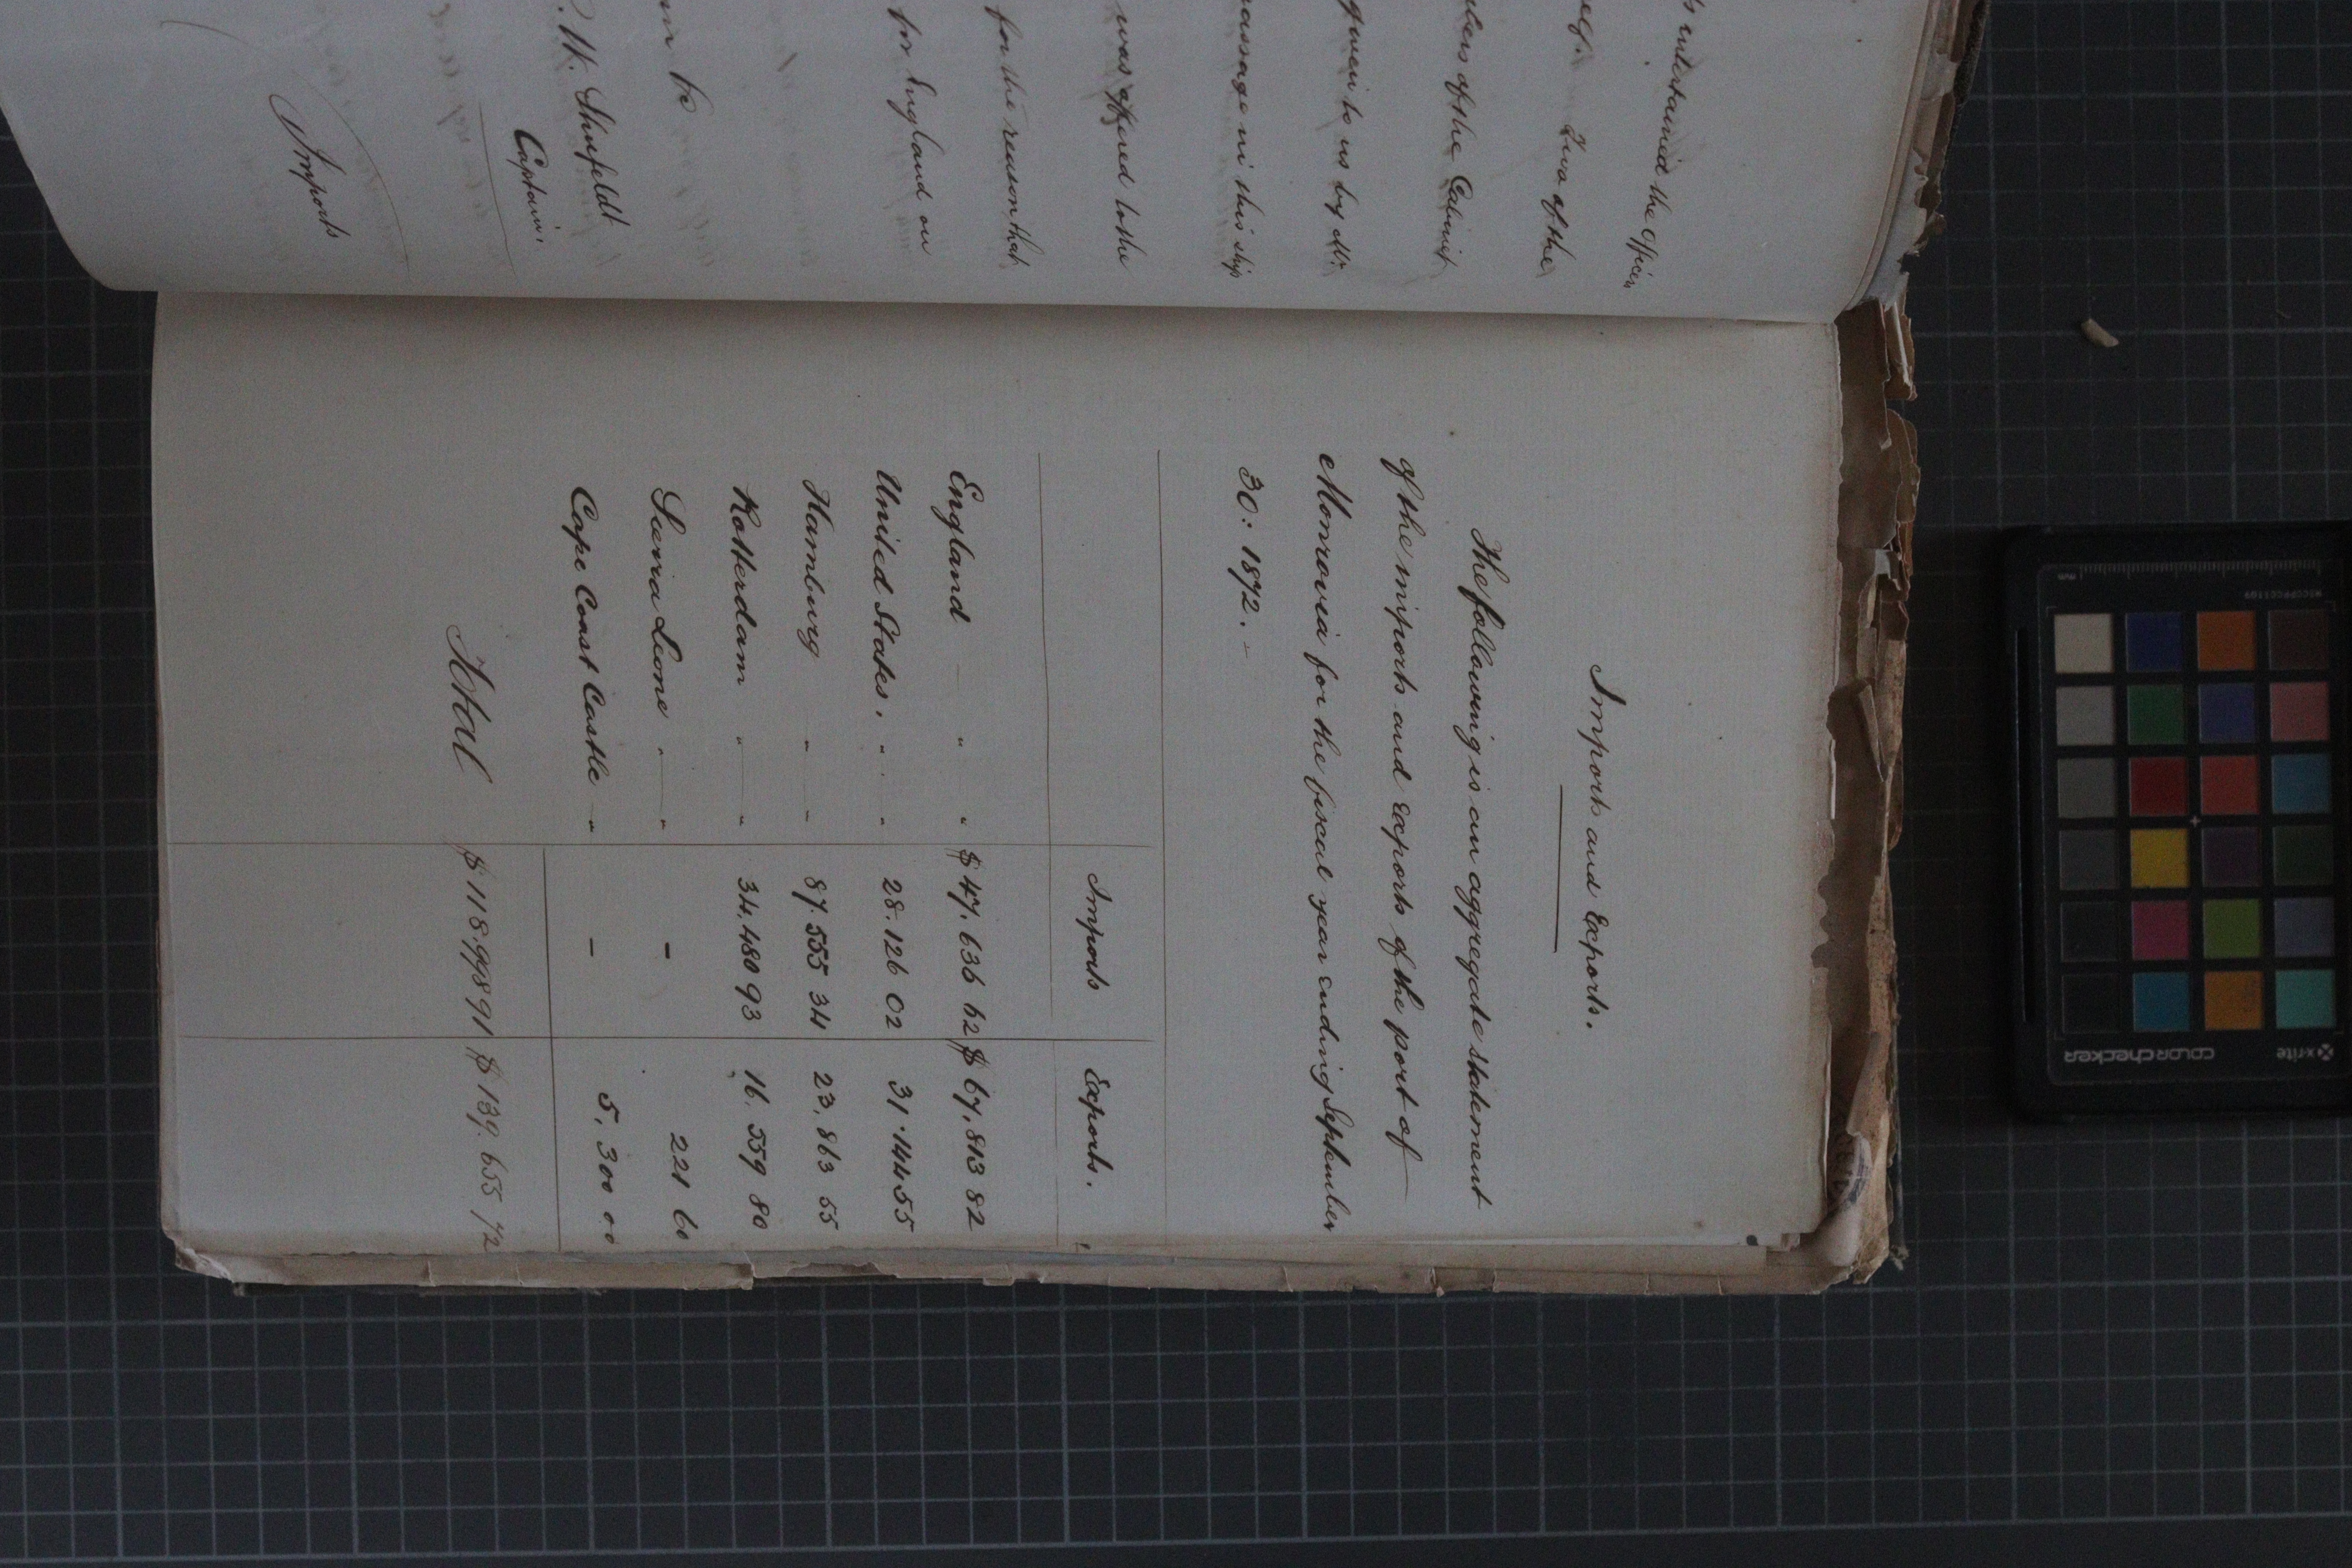 entertained the officers
Two of the
bers of the Cabinet
given to us by Mr.
passage in this ship
was offered to the
for the reason that
for England on
W. Shufeldt
Captain.
Imports
Imports and Exports.
The following is an aggregate statement
of the imports and Exports of the port of
Monrovia for the fiscal year ending September
30: 1872. -
Imports Exports.
England " " $47,636 62 $67,813 82
United States. " " 28.126 02 31.144 55
Hamburg " " 87.555 34 23,863 55
Rotterdam " " 34,480 93 16.559 80
Sierra Leone " " - 221 60
Cape Coast Castle " - 5,300 00
Total $118.998 91 $139.655 72
x-rite
colorchecker
mm